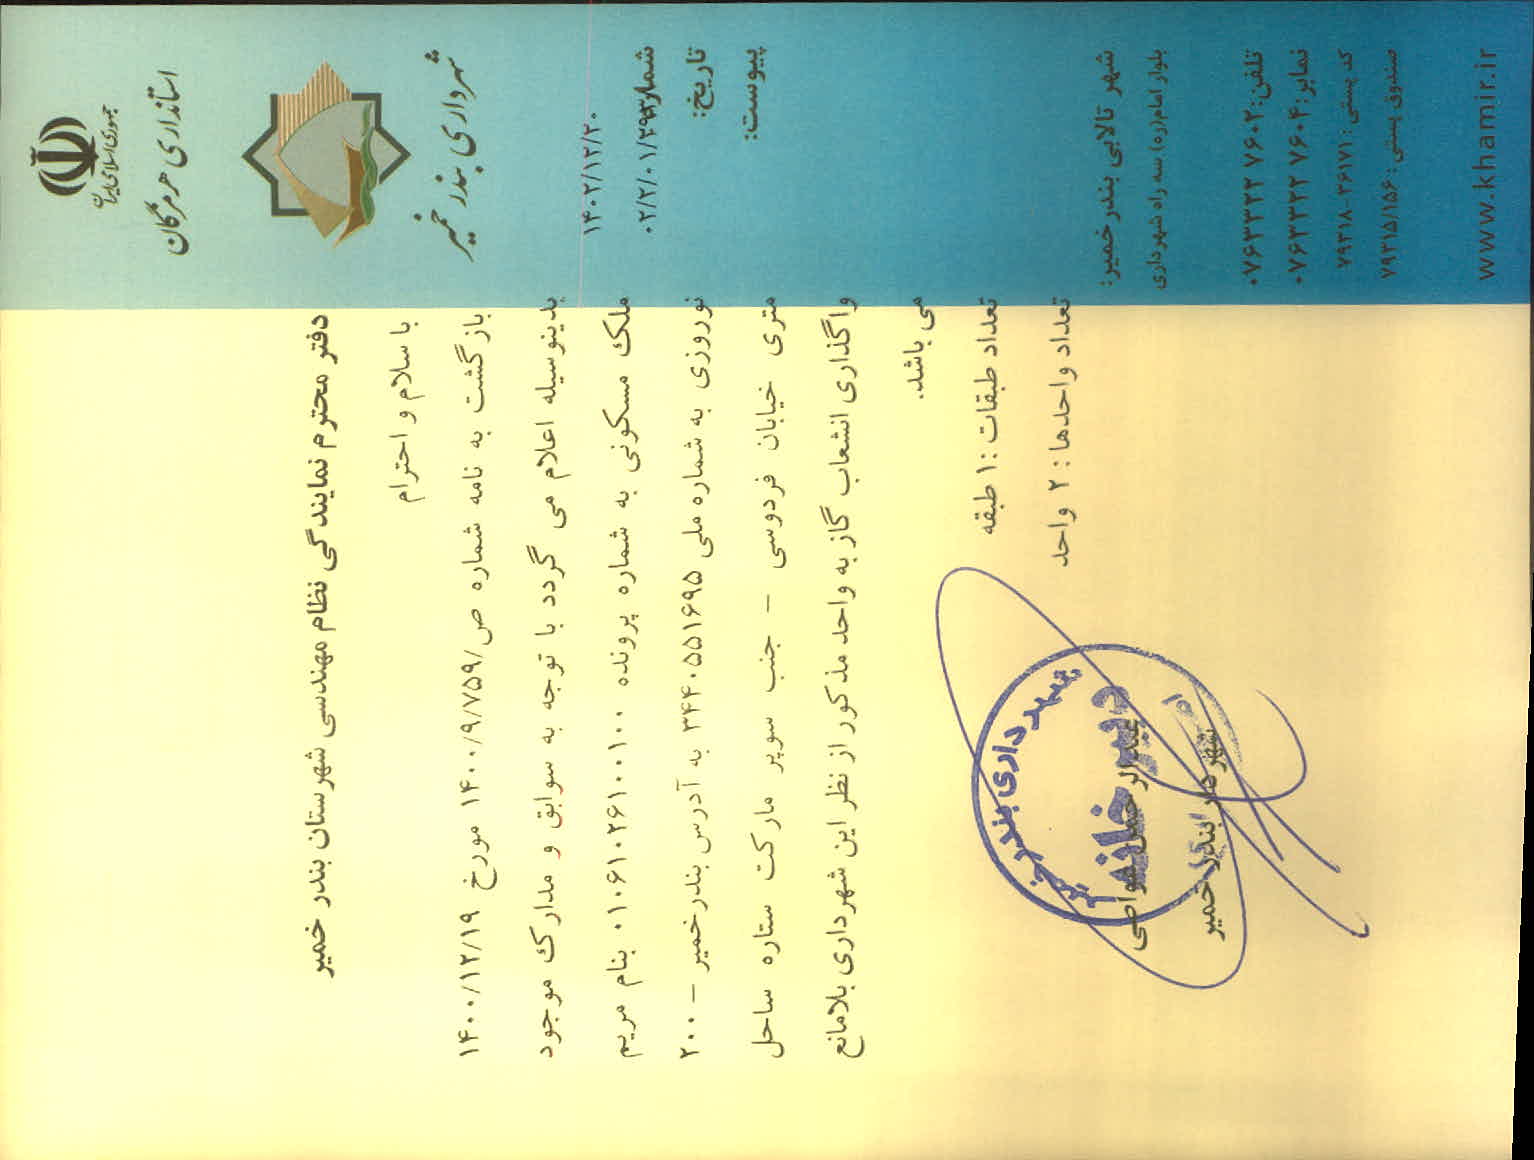 جمهوری اسلامی ایران
استانداری هرمزگان
شهرداری بندر خمیر
۱۴۰۲/۱۲/۲۰
شماره:
تاریخ:
پیوست:
دفتر محترم نمایندگی نظام مهندسی شهرستان بندر خمیر
با سلام و احترام
بازگشت به نامه شماره ص/۱۴۰۰/۹/۷۵۹ مورخ ۱۴۰۰/۱۲/۱۹
بدینوسیله اعلام می گردد با توجه به سوابق و مدارک موجود
ملک مسکونی به شماره پرونده ۰۱۰۶۱۰۲۶۱۰۰۱۰۰ بنام مریم
نوروزی به شماره ملی ۳۴۴۰۵۵۱۶۹۵ به آدرس بندرخمیر – ۲۰۰
متری خیابان فردوسی – جنب سوپر مارکت ستاره ساحل
واگذاری انشعاب گاز به واحد مذکور از نظر این شهرداری بلامانع
می باشد.
تعداد طبقات :۱ طبقه
تعداد واحدها : ۲ واحد
شهرداری بندر خمیر
دبیرخانه
شهردار بندر خمیر
شهر تالابی بندر خمیر:
بلوار امام(ره) سه راه شهرداری
تلفن: ۰۷۶۳۳۲۲ ۷۶۰۲
نمابر: ۰۷۶۳۳۲۲ ۷۶۰۴
کد پستی : ۷۹۳۱۸-۳۶۱۷۱
صندوق پستی : ۷۹۳۱۵/۱۵۶
www.khamir.ir